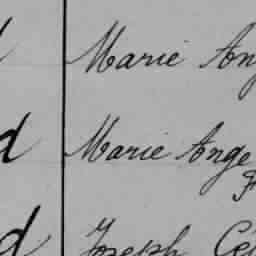 Marie Ang
d Marie Ange
d Joseph Cé